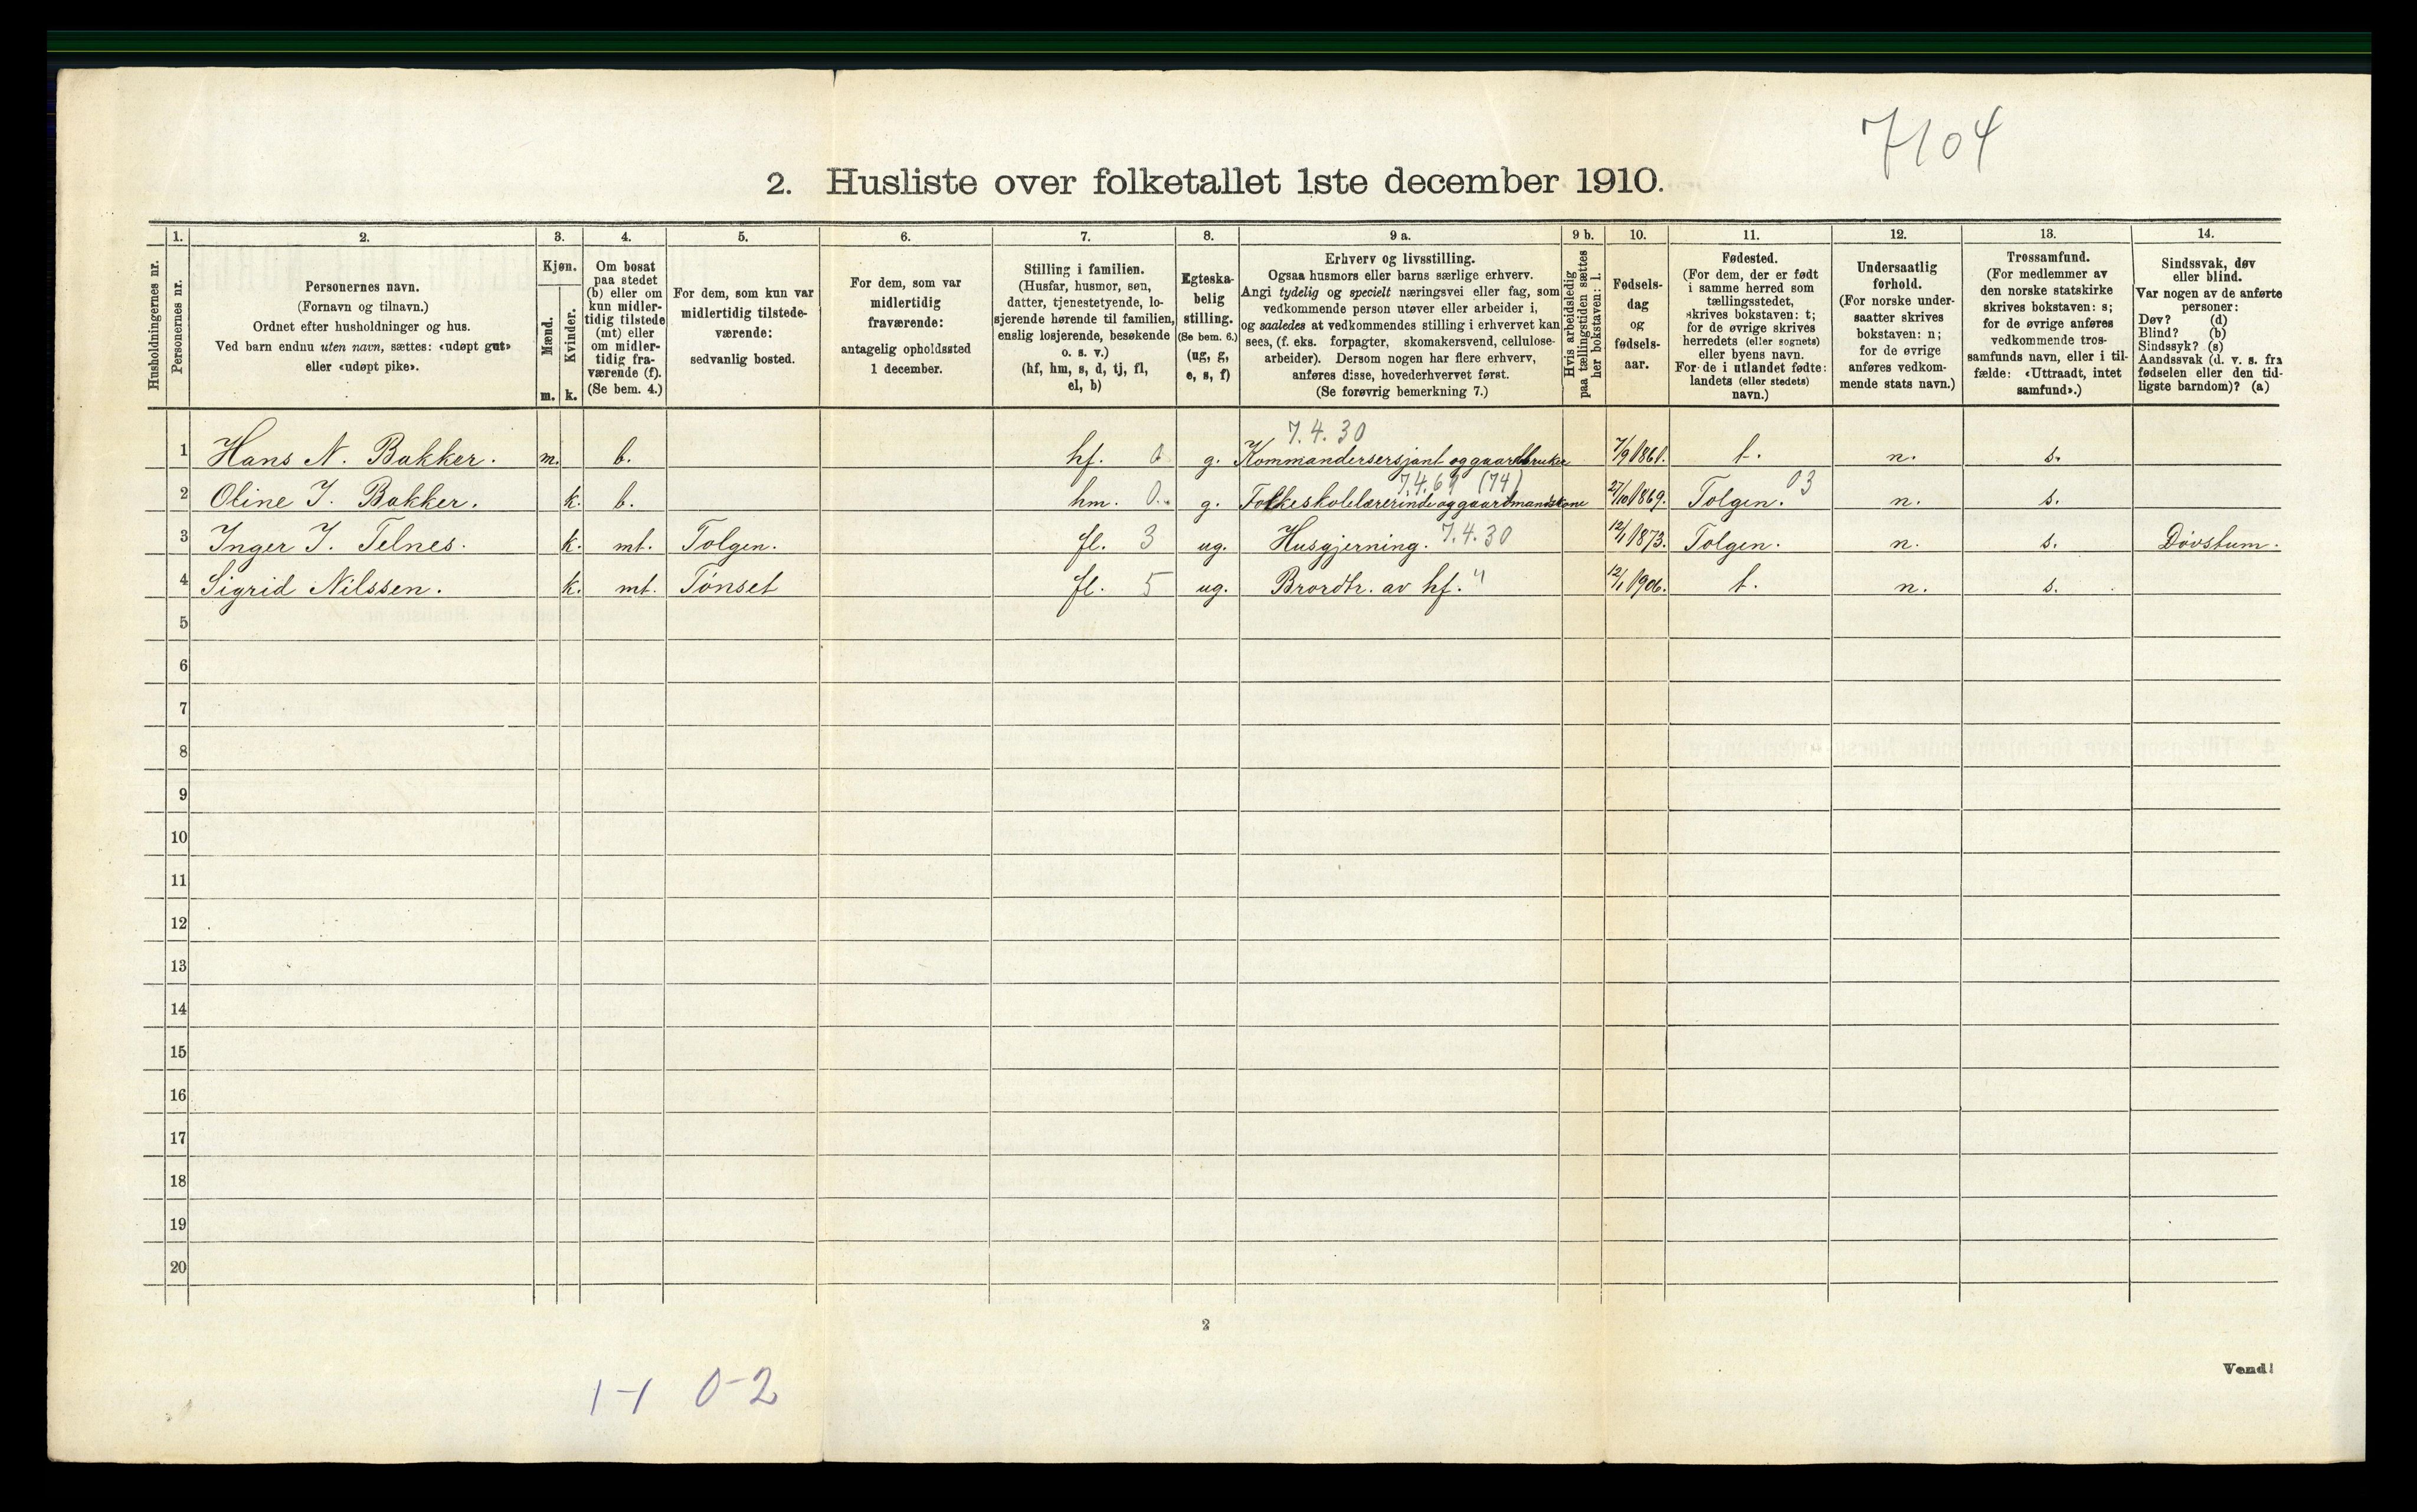 7104
2. Husliste over folketallet 1ste december 1910.
Husholdningernes nr.
1.
Personernes nr.
2.
Personernes navn.
(Fornavn og tilnavn.)
Ordnet efter husholdninger og hus.
Ved barn endnu uten navn, sættes: «udøpt gut»
eller «udøpt pike».
3.
Kjøn.
Mænd.
Kvinder.
m. k.
4.
Om bosat
paa stedet
(b) eller om
kun midler-
tidig tilstede
(mt) eller
om midler-
tidig fra-
værende (f).
(Se bem. 4.)
5.
For dem, som kun var
midlertidig tilstede-
værende:
sedvanlig bosted.
6.
For dem, som var
midlertidig
fraværende:
antagelig opholdssted
1 december.
7.
Stilling i familien.
(Husfar, husmor, søn,
datter, tjenestetyende, lo-
sjerende hørende til familien,
enslig losjerende, besøkende
o. s. v.)
(hf, hm, s, d, tj, fl,
el, b)
8.
Egteska-
belig
stilling.
(Se bem. 6.)
(ug, g,
e, s, f)
9 a.
Erhverv og livsstilling.
Ogsaa husmors eller barns særlige erhverv.
Angi tydelig og specielt næringsvei eller fag, som
vedkommende person utøver eller arbeider i,
og saaledes at vedkommendes stilling i erhvervet kan
sees, (f. eks. forpagter, skomakersvend, cellulose-
arbeider). Dersom nogen har flere erhverv,
anføres disse, hovederhvervet først.
(Se forøvrig bemerkning 7.)
9 b.
Hvis arbeidsledig
paa tællingstiden sættes
her bokstaven: l.
10.
Fødsels-
dag
og
fødsels-
aar.
11.
Fødested.
(For dem, der er født
i samme herred som
tællingsstedet,
skrives bokstaven: t;
for de øvrige skrives
herredets (eller sognets)
eller byens navn.
For de i utlandet fødte:
landets (eller stedets)
navn.)
12.
Undersaatlig
forhold.
(For norske under-
saatter skrives
bokstaven: n;
for de øvrige
anføres vedkom-
mende stats navn.)
13.
Trossamfund.
(For medlemmer av
den norske statskirke
skrives bokstaven: s;
for de øvrige anføres
vedkommende tros-
samfunds navn, eller i til-
fælde: «Uttraadt, intet
samfund».)
14.
Sindssvak, døv
eller blind.
Var nogen av de anførte
personer:
Døv? (d)
Blind? (b)
Sindssyk? (s)
Aandssvak (d. v. s. fra
fødselen eller den tid-
ligste barndom)? (a)
7.4.30
1 Hans N. Bakker. m. b. hf. 0 g. Kommandersersjant og gaardbruker 7/9 1861. t. n. s.
7.4.69 (74) 03
2 Oline J. Bakker. k. b. hm. 0. g. Folkeskolelærerinde og gaardmandskone 27/10 1869. Tolgen. n. s.
3 Inger J. Telnes. k. mt. Tolgen. fl. 3 ug. Husgjerning. 7.4.30 12/1 1873. Tolgen. n. s. Døvstum.
4 Sigrid Nilssen. k. mt. Tönset fl. 5 ug. Brordtr. av hf. " 12/1 1906. t. n. s.
5
6
7
8
9
10
11
12
13
14
15
16
17
18
19
20
2
Vend!
1-1 0-2